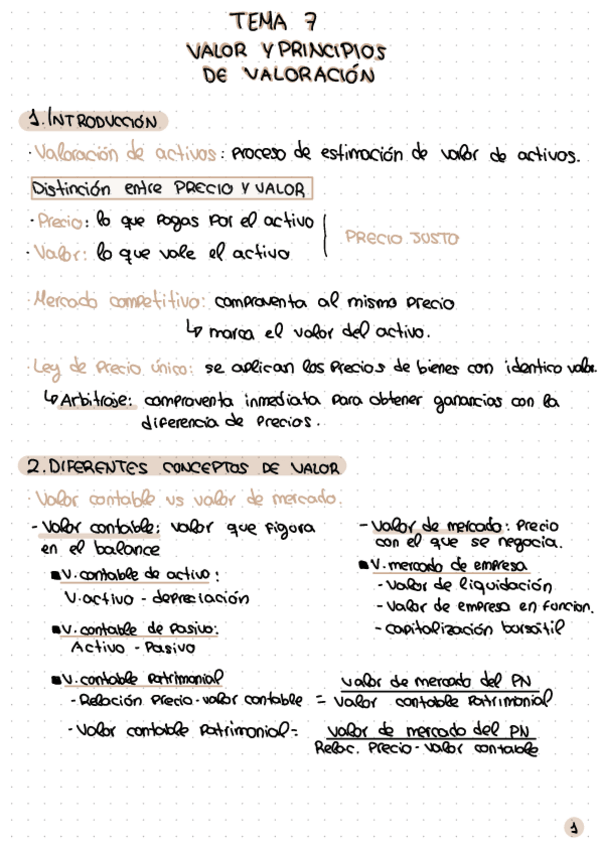 TEMA 7
VALOR Y PRINCIPIOS
DE VALORACIÓN
1. INTRODUCCIÓN
· Valoración de activos: proceso de estimación de valor de activos.
Distinción entre PRECIO Y VALOR
· Precio: lo que pagas por el activo
PRECIO JUSTO
· Valor: lo que vale el activo
· Mercado competitivo: compraventa al mismo precio
↳ marca el valor del activo.
· Ley de Precio único: se aplican los precios de bienes con identico valor.
↳ Arbitraje: compraventa inmediata para obtener ganancias con la
diferencia de precios.
2. DIFERENTES CONCEPTOS DE VALOR
· Valor contable vs valor de mercado.
- Valor contable: valor que figura
en el balance
▪ V. contable de activo:
V. activo - depreciación
▪ V. contable de Pasivo:
Activo - Pasivo
▪ V. contable Patrimonial
- Relación Precio-valor contable = valor de mercado del PN / valor contable Patrimonial
- Valor contable Patrimonial = valor de mercado del PN / Relac. Precio-valor contable
- Valor de mercado: Precio
con el que se negocia.
▪ V. mercado de empresa
- Valor de liquidación
- Valor de empresa en funcion.
- capitalización bursátil
1